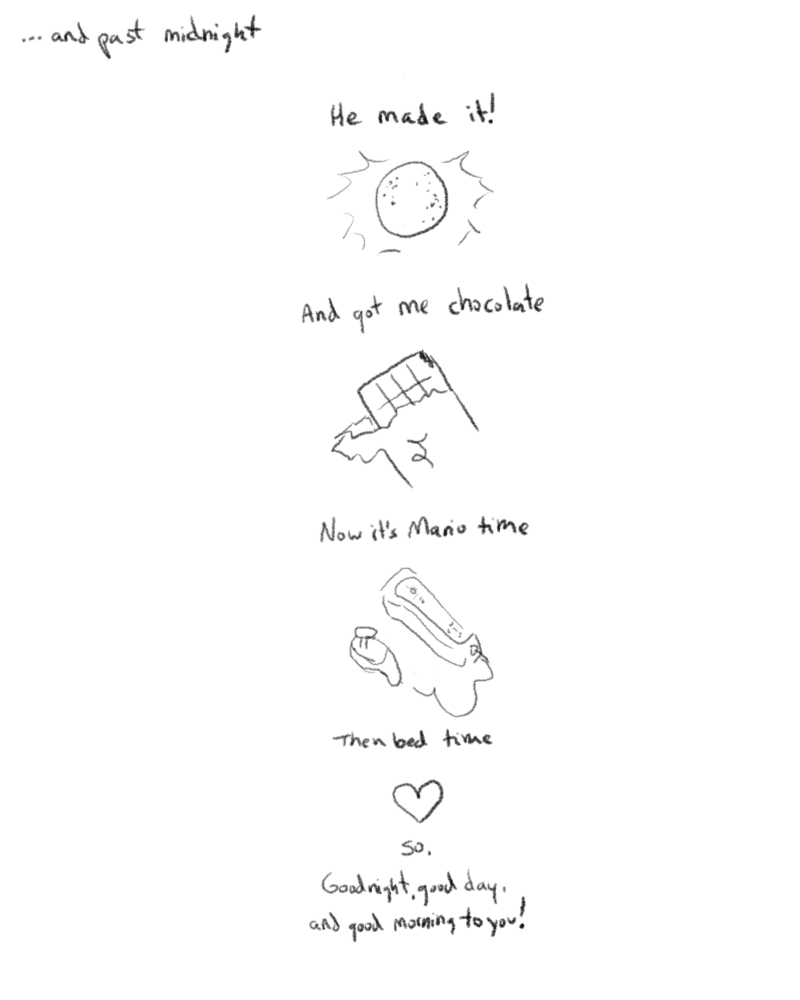 ... and past midnight
He made it!
And got me chocolate
Now it's Mario time
Then bed time
So,
Goodnight, good day,
and good morning to you!